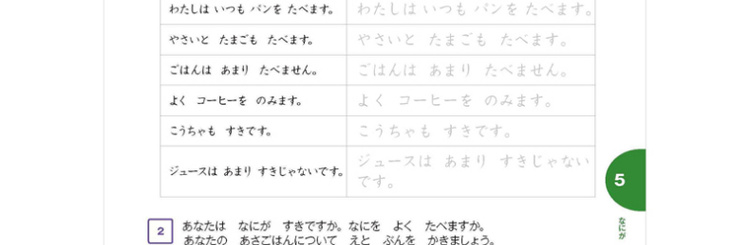 わたしは いつも パンを たべます。 わたしは いつも パンを たべます。
やさいと たまごも たべます。 やさいと たまごも たべます。
ごはんは あまり たべません。 ごはんは あまり たべません。
よく コーヒーを のみます。 よく コーヒーを のみます。
こうちゃも すきです。 こうちゃも すきです。
ジュースは あまり すきじゃないです。 ジュースは あまり すきじゃない
です。
5
なにが
2 あなたは なにが すきですか。なにを よく たべますか。
あなたの あさごはんについて えと ぶんを かきましょう。